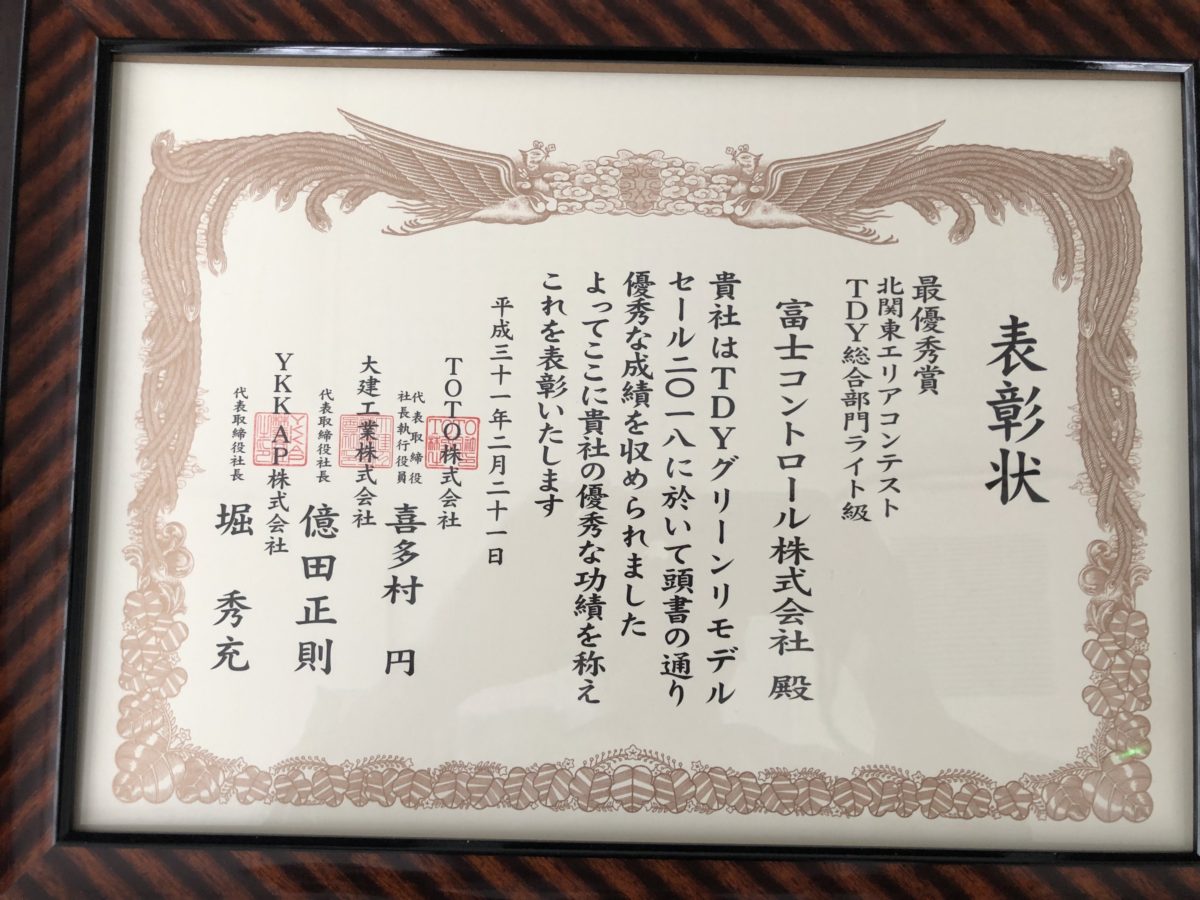 表彰状
最優秀賞
北関東エリアコンテスト
TDY総合部門ライト級
富士コントロール株式会社 殿
貴社はTDYグリーンリモデル
セール二〇一八に於いて頭書の通り
優秀な成績を収められました
よってここに貴社の優秀な功績を称え
これを表彰いたします
平成三十一年二月二十一日
TOTO株式会社
代表取締役
社長執行役員
喜多村 円
大建工業株式会社
代表取締役社長 億田正則
YKK AP株式会社
代表取締役社長 堀 秀充